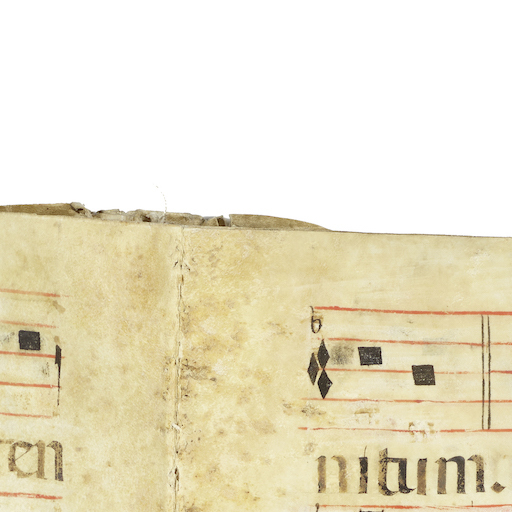 ren
nitum.